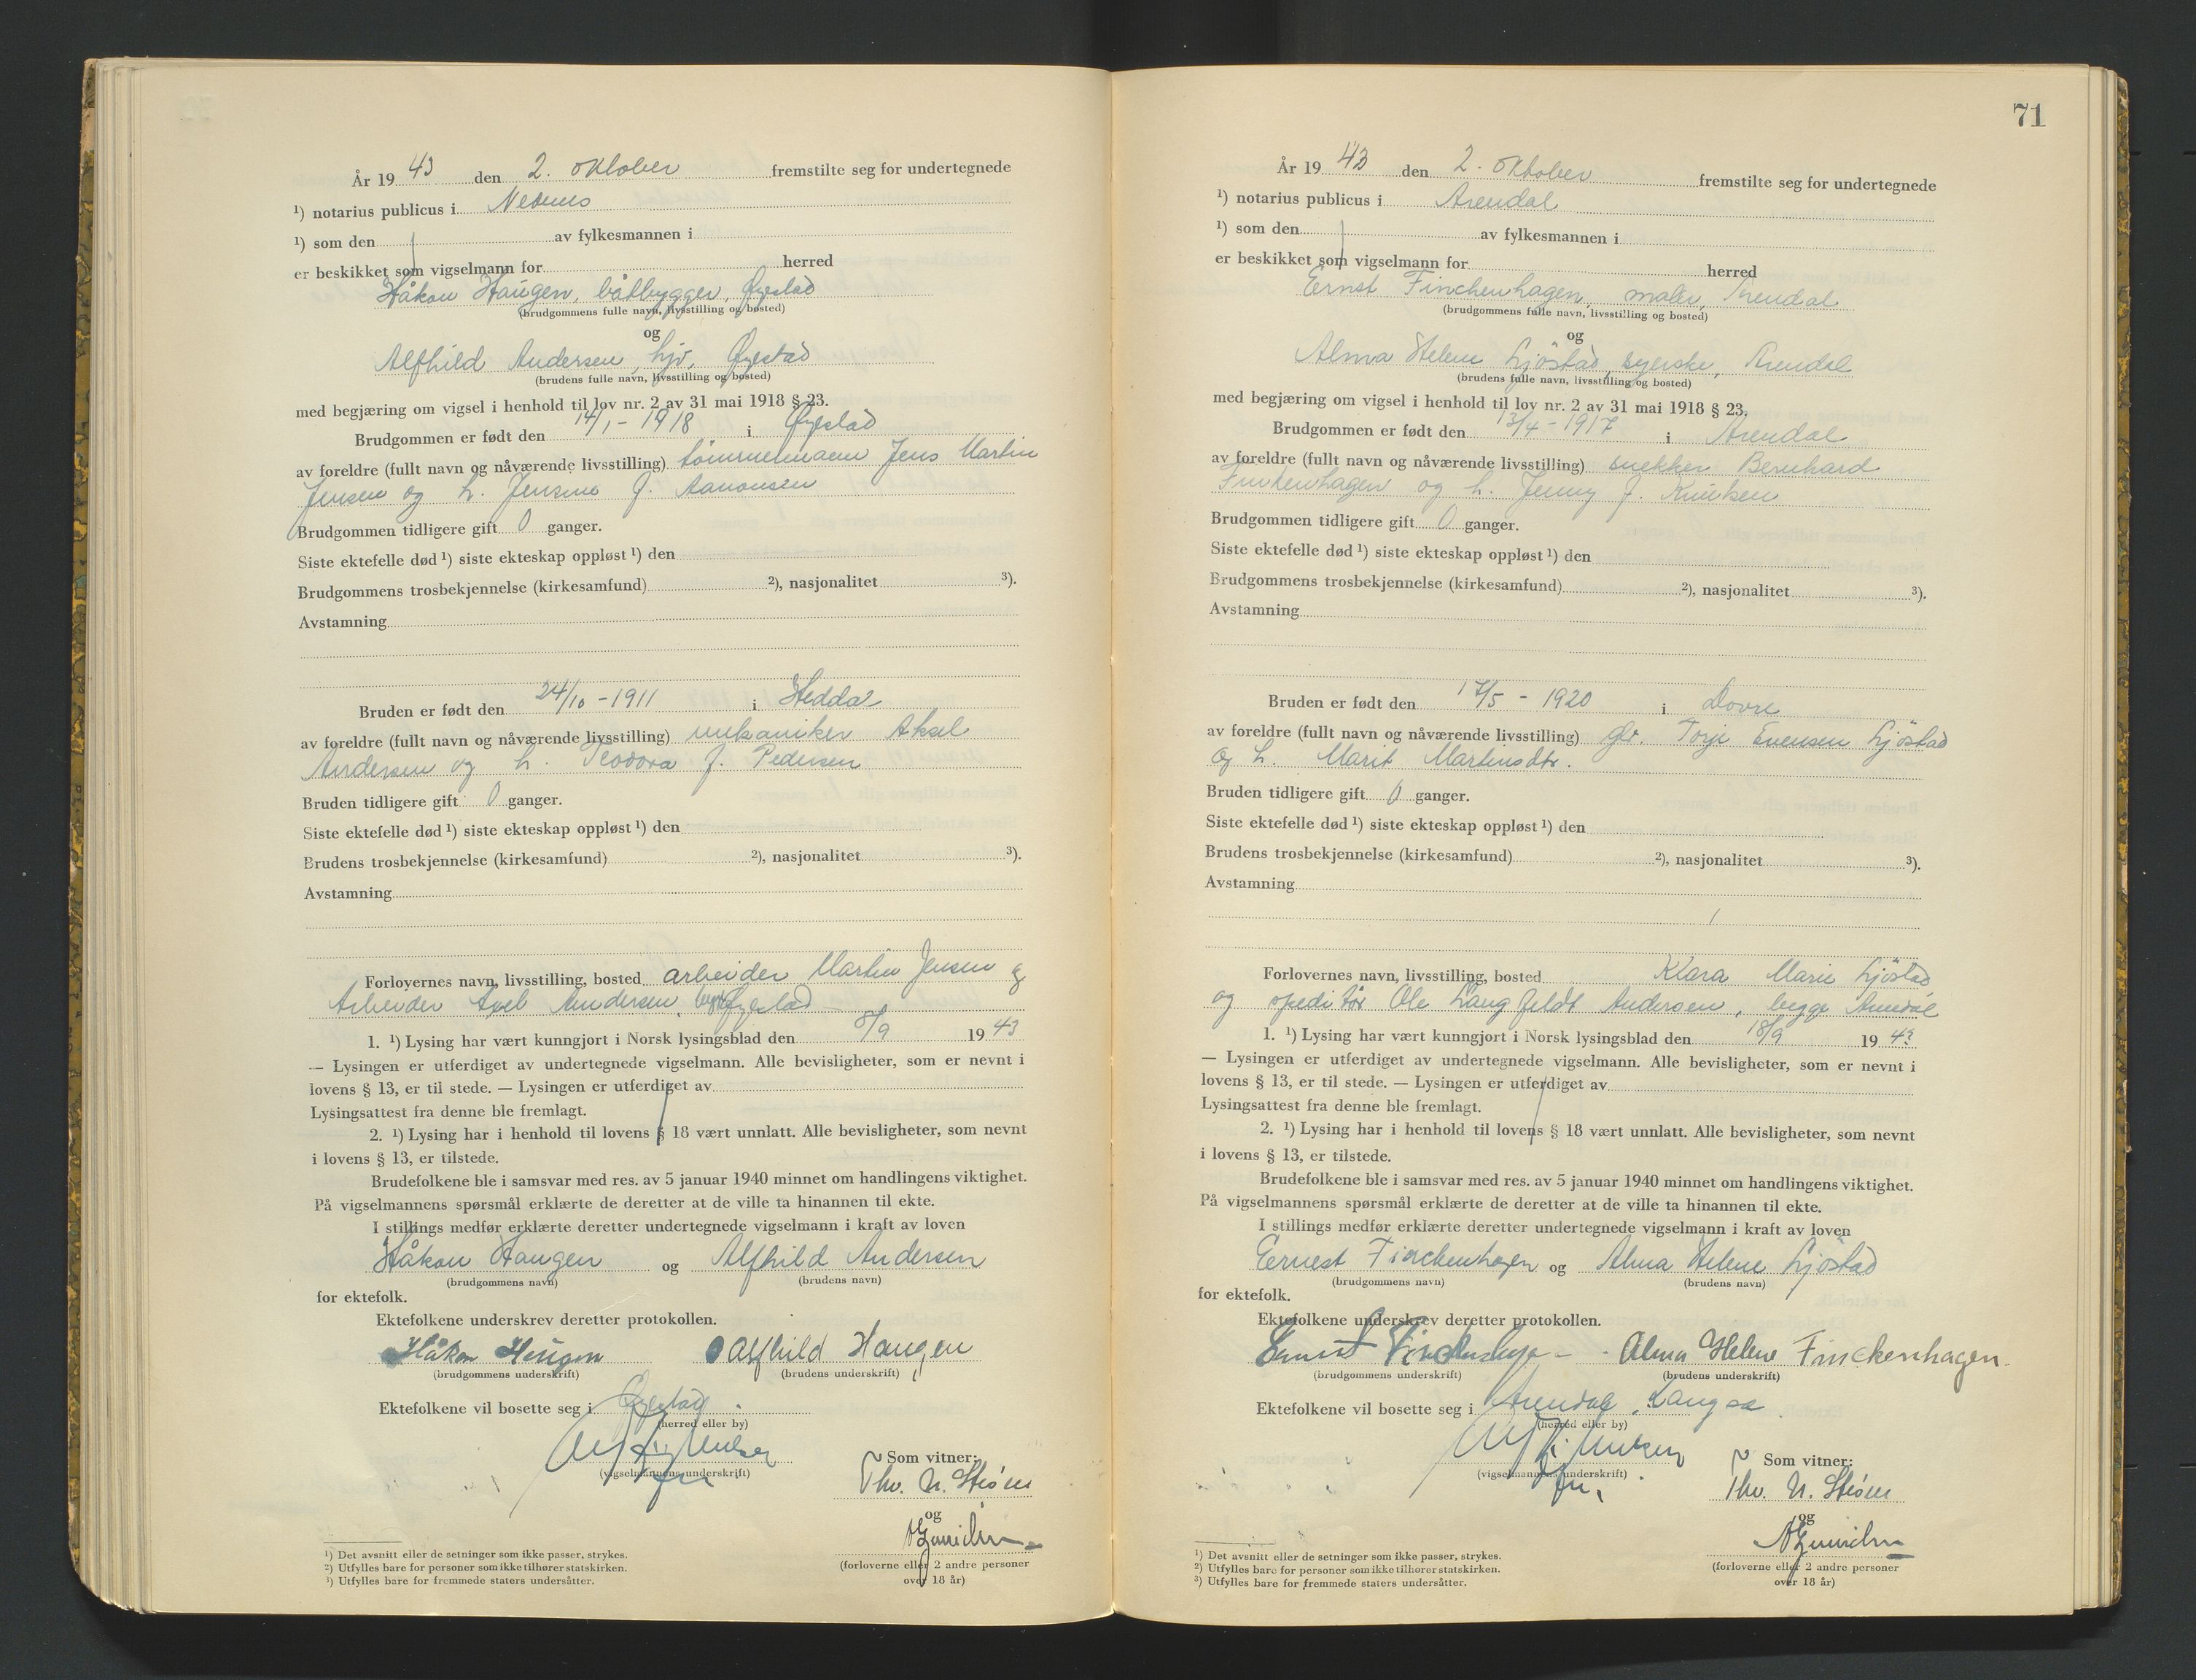 År 19 43 den 2. oktober fremstilte seg for undertegnede
¹) notarius publicus i Nedenes
¹) som den av fylkesmannen i
er beskikket som vigselmann for herred
Håkon Haugen, båtbygger, Øyestad
(brudgommens fulle navn, livsstilling og bosted)
og
Alfhild Andersen, hjv, Øyestad
(brudens fulle navn, livsstilling og bosted)
med begjæring om vigsel i henhold til lov nr. 2 av 31 mai 1918 § 23.
Brudgommen er født den 14/1 - 1918 i Øyestad
av foreldre (fullt navn og nåværende livsstilling) tömmermann Jens Martin
Jensen og h. Jensine f. Aanonsen
Brudgommen tidligere gift 0 ganger.
Siste ektefelle død ¹) siste ekteskap oppløst ¹) den
Brudgommens trosbekjennelse (kirkesamfund) ²), nasjonalitet ³).
Avstamning
Bruden er født den 24/10 - 1911 i Heddal
av foreldre (fullt navn og nåværende livsstilling) mekaniker Aksel
Andersen og h. Teodora f. Pedersen
Bruden tidligere gift 0 ganger.
Siste ektefelle død ¹) siste ekteskap oppløst ¹) den
Brudens trosbekjennelse (kirkesamfund) ²), nasjonalitet ³).
Avstamning
Forlovernes navn, livsstilling, bosted arbeider Martin Jensen og
Arbeider Axel Andersen, begge Øyestad
1. ¹) Lysing har vært kunngjort i Norsk lysingsblad den 8/9 19 43
— Lysingen er utferdiget av undertegnede vigselmann. Alle bevisligheter, som er nevnt i
lovens § 13, er til stede. — Lysingen er utferdiget av
Lysingsattest fra denne ble fremlagt.
2. ¹) Lysing har i henhold til lovens § 18 vært unnlatt. Alle bevisligheter, som nevnt
i lovens § 13, er tilstede.
Brudefolkene ble i samsvar med res. av 5 januar 1940 minnet om handlingens viktighet.
På vigselmannens spørsmål erklærte de deretter at de ville ta hinannen til ekte.
I stillings medfør erklærte deretter undertegnede vigselmann i kraft av loven
Håkon Haugen og Alfhild Andersen
(brudgommens navn) (brudens navn)
for ektefolk.
Ektefolkene underskrev deretter protokollen.
Håkon Haugen Alfhild Haugen
(brudgommens underskrift) (brudens underskrift)
Ektefolkene vil bosette seg i Øyestad.
(herred eller by)
(vigselmannens underskrift)
Som vitner:
Thv. N. Strøm
og
(forloverne eller 2 andre personer
over 18 år)
¹) Det avsnitt eller de setninger som ikke passer, strykes.
²) Utfylles bare for personer som ikke tilhører statskirken.
³) Utfylles bare for fremmede staters undersåtter.
71
År 19 43 den 2. oktober fremstilte seg for undertegnede
¹) notarius publicus i Arendal
¹) som den av fylkesmannen i
er beskikket som vigselmann for herred
Ernst Finchenhagen, maler, Arendal
(brudgommens fulle navn, livsstilling og bosted)
og
Alma Helene Ljöstad, syerske, Arendal
(brudens fulle navn, livsstilling og bosted)
med begjæring om vigsel i henhold til lov nr. 2 av 31 mai 1918 § 23.
Brudgommen er født den 13/4 - 1917 i Arendal
av foreldre (fullt navn og nåværende livsstilling) snekker Bernhard
Finkenhagen og h. Jenny f. Knutsen
Brudgommen tidligere gift 0 ganger.
Siste ektefelle død ¹) siste ekteskap oppløst ¹) den
Brudgommens trosbekjennelse (kirkesamfund) ²), nasjonalitet ³).
Avstamning
Bruden er født den 17/5 - 1920 i Dovre
av foreldre (fullt navn og nåværende livsstilling) Torje Evensen Ljöstad
og h. Marit Martinsdtr.
Bruden tidligere gift 0 ganger.
Siste ektefelle død ¹) siste ekteskap oppløst ¹) den
Brudens trosbekjennelse (kirkesamfund) ²), nasjonalitet ³).
Avstamning
Forlovernes navn, livsstilling, bosted Klara Marie Ljöstad
og speditör Ole Langfeldt Andersen, begge Arendal
1. ¹) Lysing har vært kunngjort i Norsk lysingsblad den 18/9 19 43
— Lysingen er utferdiget av undertegnede vigselmann. Alle bevisligheter, som er nevnt i
lovens § 13, er til stede. — Lysingen er utferdiget av
Lysingsattest fra denne ble fremlagt.
2. ¹) Lysing har i henhold til lovens § 18 vært unnlatt. Alle bevisligheter, som nevnt
i lovens § 13, er tilstede.
Brudefolkene ble i samsvar med res. av 5 januar 1940 minnet om handlingens viktighet.
På vigselmannens spørsmål erklærte de deretter at de ville ta hinannen til ekte.
I stillings medfør erklærte deretter undertegnede vigselmann i kraft av loven
Ernest Finckenhagen og Alma Helene Ljöstad
(brudgommens navn) (brudens navn)
for ektefolk.
Ektefolkene underskrev deretter protokollen.
Ernst Finckenhagen - Alma Helene Finckenhagen.
(brudgommens underskrift) (brudens underskrift)
Ektefolkene vil bosette seg i Arendal, Langsæ
(herred eller by)
(vigselmannens underskrift)
Som vitner:
Thv. N. Strøm
og
(forloverne eller 2 andre personer
over 18 år)
¹) Det avsnitt eller de setninger som ikke passer, strykes.
²) Utfylles bare for personer som ikke tilhører statskirken.
³) Utfylles bare for fremmede staters undersåtter.